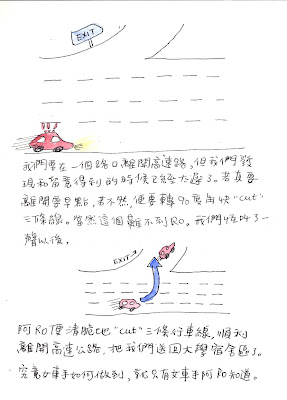 EXIT
我們要在一個路口離開高速路,但我們發
現和留意得到的時候已經太遲了。若真要
離開要早點,若不然,便要轉90度角4快"cut"
三條線。當然這個難不到RO。我們4在叫了一
聲以後,
EXIT
阿RO便清脆地"cut"三條行車線,順利
離開高速公路,把我們送回大學宿舍區了。
究竟女車手如何做到,就只有女車手阿RO知道。